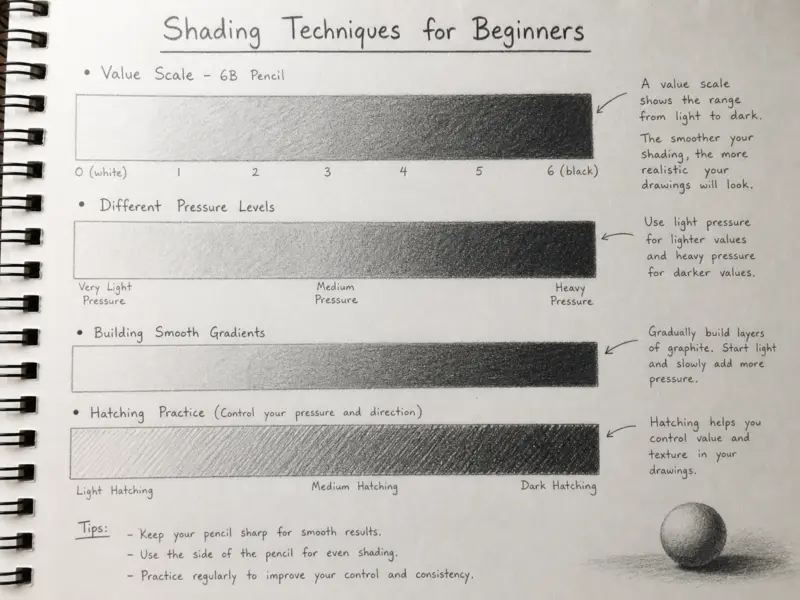 Shading Techniques for Beginners
• Value Scale – 6B Pencil
0 (white) 1 2 3 4 5 6 (black)
A value scale
shows the range
from light to dark.
The smoother your
shading, the more
realistic your
drawings will look.
• Different Pressure Levels
Very Light
Pressure
Medium
Pressure
Heavy
Pressure
Use light pressure
for lighter values
and heavy pressure
for darker values.
• Building Smooth Gradients
Gradually build layers
of graphite. Start light
and slowly add more
pressure.
• Hatching Practice (Control your pressure and direction)
Light Hatching Medium Hatching Dark Hatching
Hatching helps you
control value and
texture in your
drawings.
Tips:
– Keep your pencil sharp for smooth results.
– Use the side of the pencil for even shading.
– Practice regularly to improve your control and consistency.